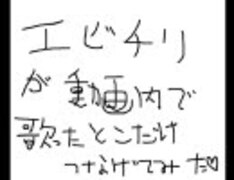 エビチリ
が動画内で
歌ったとこだけ
つなげてみた♡